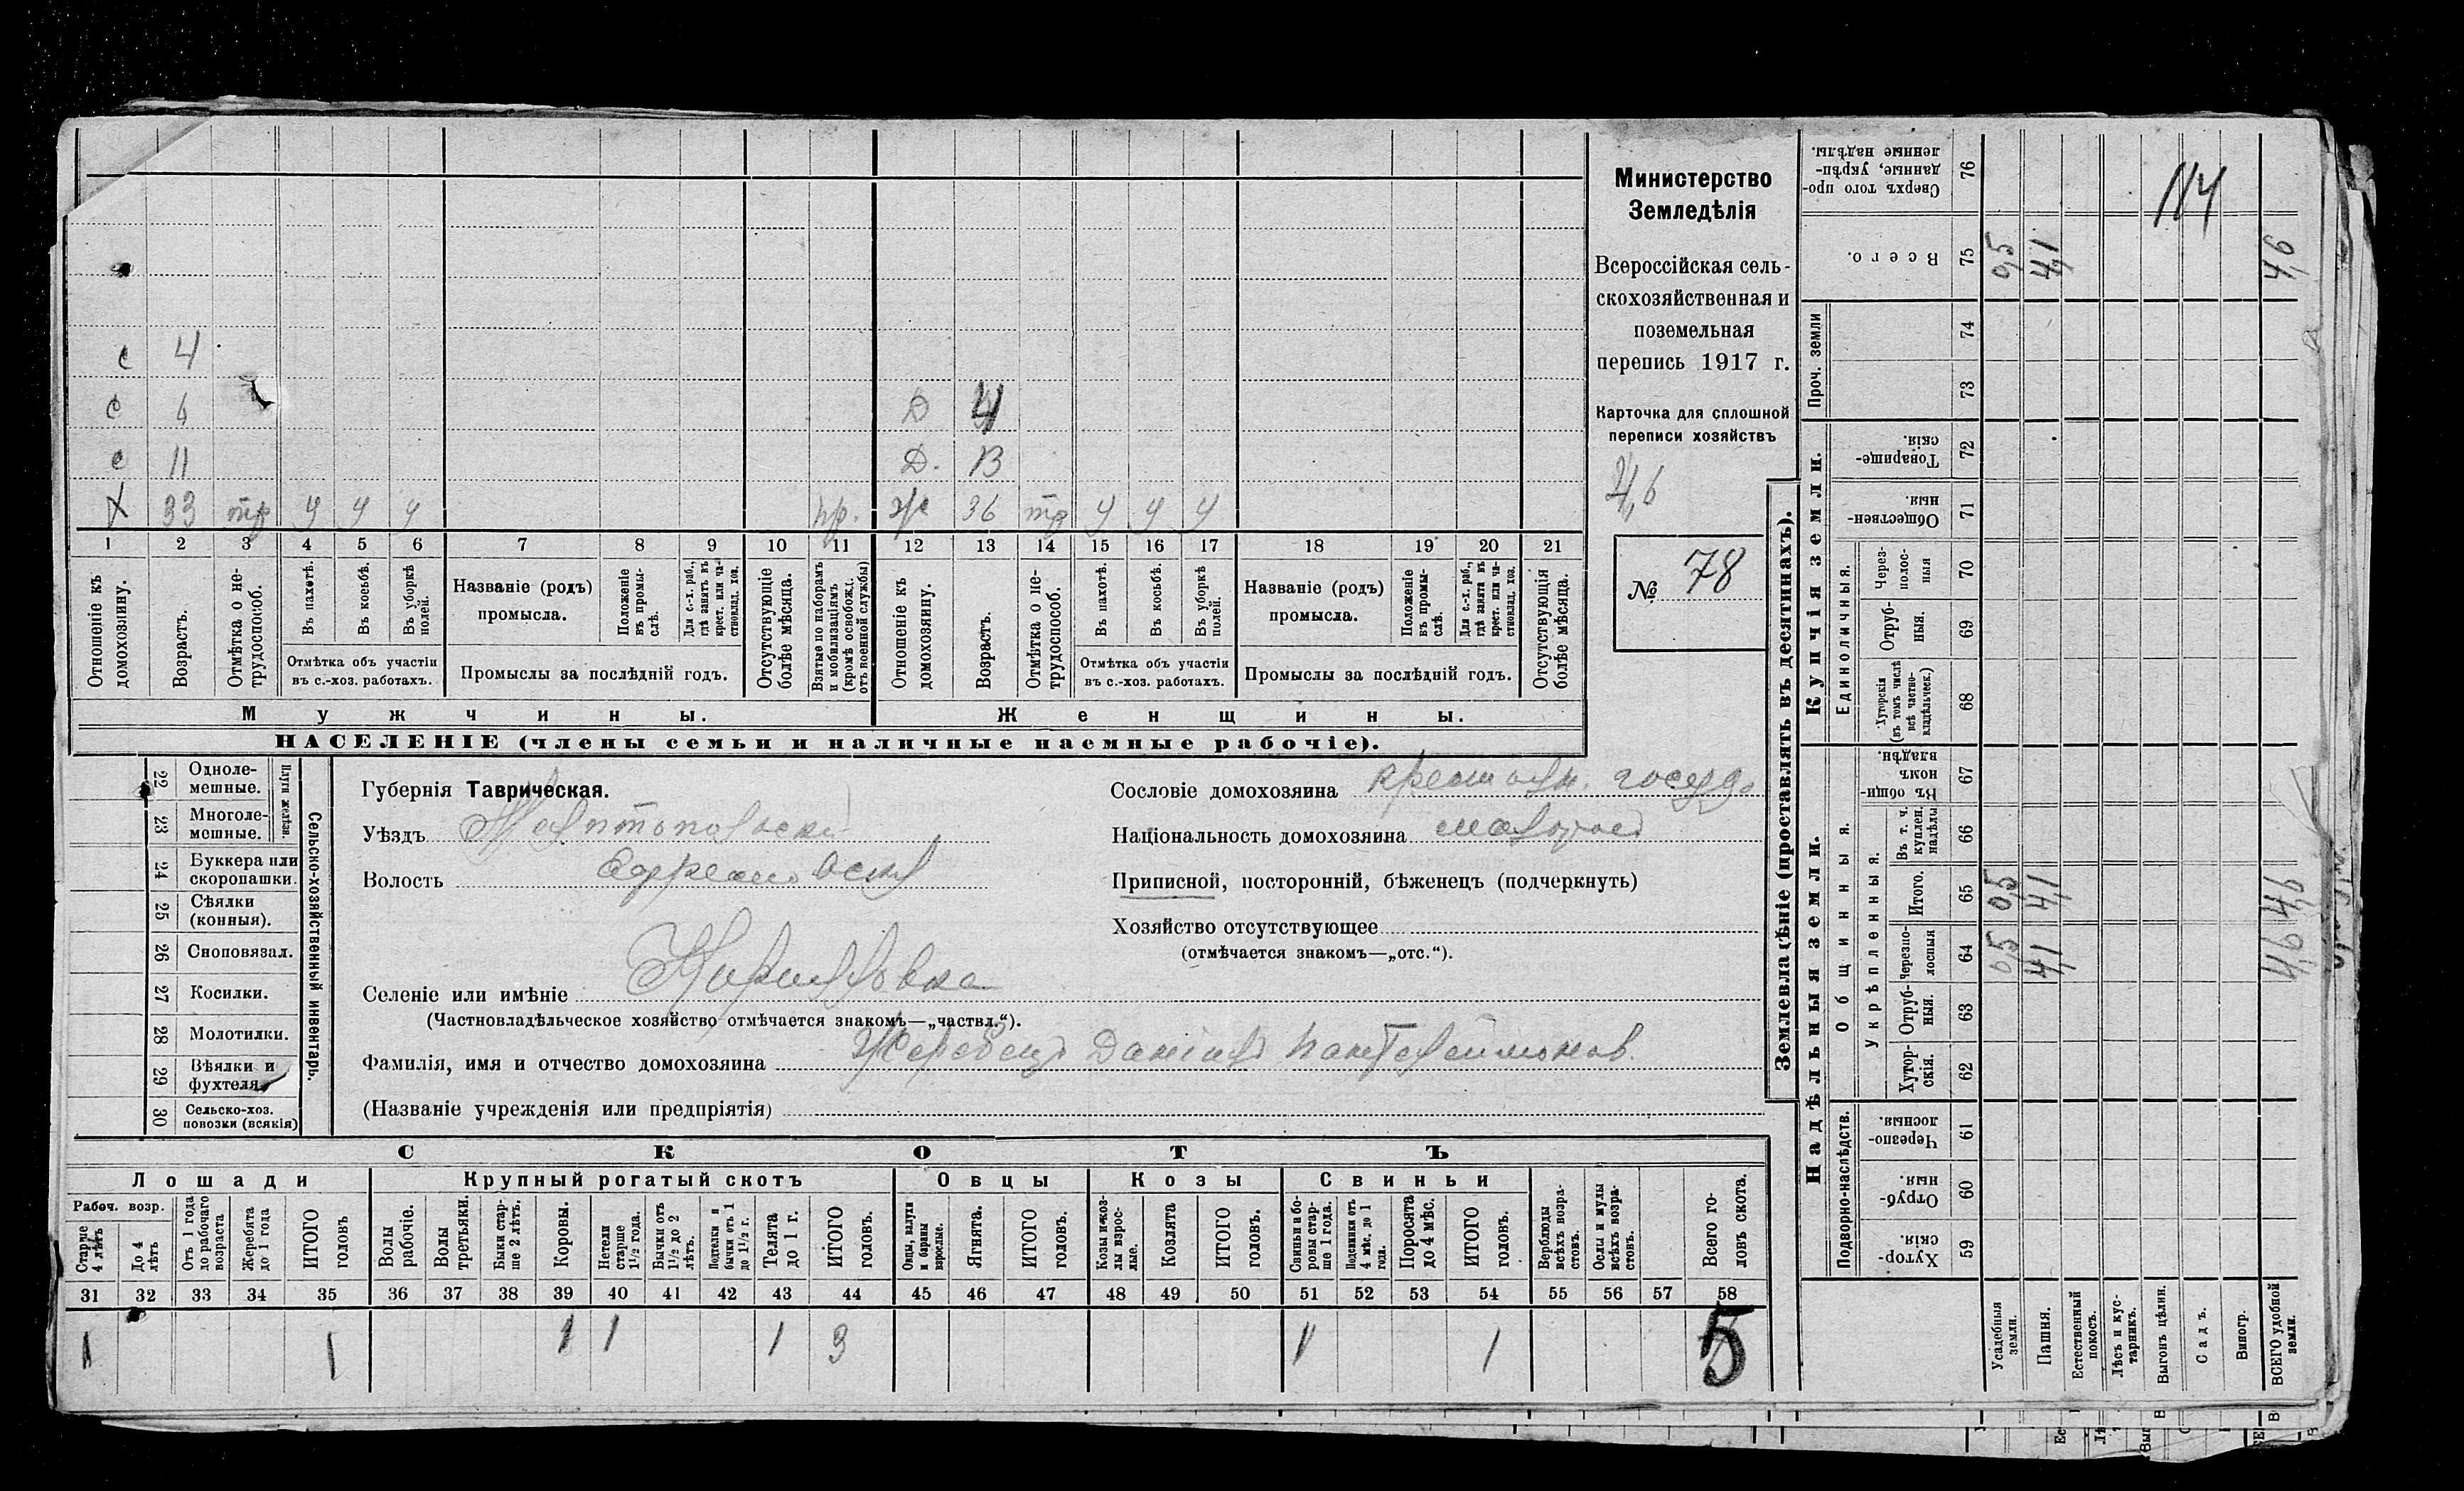 с 4
с 6 Д 4
с 11 Д. 13
Х 33 тр у у у пр. ж 36 тр у у у
1 2 3 4 5 6 7 8 9 10 11 12 13 14 15 16 17 18 19 20 21
Отношеніе къ домохозяину.
Возрастъ.
Отмѣтка о нетрудоспособ.
Въ пахотѣ.
Въ косьбѣ.
Въ уборкѣ полей.
Отмѣтка объ участіи
въ с.-хоз. работахъ.
Названіе (родъ)
промысла.
Положеніе въ промыслѣ.
Для с.-х. раб., гдѣ занятъ въ крест. или частновлад. хоз.
Промыслы за послѣдній годъ.
Отсутствующіе болѣе мѣсяца.
Взятые по наборамъ и мобилизаціямъ (кромѣ освобожд. отъ военной службы)
Отношеніе къ домохозяину.
Возрастъ.
Отмѣтка о нетрудоспособ.
Въ пахотѣ.
Въ косьбѣ.
Въ уборкѣ полей.
Отмѣтка объ участіи
въ с.-хоз. работахъ.
Названіе (родъ)
промысла.
Положеніе въ промыслѣ.
Для с.-х. раб., гдѣ занята въ крест. или частновлад. хоз.
Промыслы за послѣдній годъ.
Отсутствующія болѣе мѣсяца.
Мужчины.
Женщины.
НАСЕЛЕНІЕ (члены семьи и наличные наемные рабочіе).
Министерство
Земледѣлія
Всероссійская сель-
скохозяйственная и
поземельная
перепись 1917 г.
Карточка для сплошной
переписи хозяйствъ
4,6
№ 78
Сельско-хозяйственный инвентарь.
Плуги желѣзн.
22 Одноле-
мешные.
23 Многоле-
мешные.
24 Буккера или
скоропашки.
25 Сѣялки
(конныя).
26 Сноповязал.
27 Косилки.
28 Молотилки.
29 Вѣялки и
фухтеля.
30 Сельско-хоз.
повозки (всякія)
Губернія Таврическая.
Уѣздъ Мелитопольскій
Волость Ефремовская
Селеніе или имѣніе Кирилловка
(Частновладѣльческое хозяйство отмѣчается знакомъ—„частвл.“).
Фамилія, имя и отчество домохозяина Жеребецъ Даніилъ Пантелеймонов.
(Названіе учрежденія или предпріятія)
Сословіе домохозяина крестьян.
Національность домохозяина малоросъ
Приписной, посторонній, бѣженецъ (подчеркнуть)
Хозяйство отсутствующее
(отмѣчается знакомъ—„отс.“).
СКОТЪ
Лошади
Крупный рогатый скотъ
Овцы
Козы
Свиньи
Рабоч. возр.
Старше 4 лѣтъ
До 4 лѣтъ
Отъ 1 года до рабочаго возраста
Жеребята до 1 года
ИТОГО головъ
Волы рабочіе.
Волы третьяки.
Быки старше 2 лѣтъ.
Коровы.
Нетели старше 1½ года.
Бычки отъ 1½ до 2 лѣтъ.
Подтелки и бычки отъ 1 до 1½ г.
Телята до 1 г.
ИТОГО головъ.
Овцы, валухи и бараны взрослые.
Ягнята.
ИТОГО головъ.
Козы и козлы взрослые.
Козлята
ИТОГО головъ.
Свиньи и боровы старше 1 года.
Подсвинки отъ 4 мѣс. до 1 года.
Поросята до 4 мѣс.
ИТОГО головъ.
Верблюды всѣхъ возрастовъ.
Ослы и мулы всѣхъ возрастовъ.
Всего головъ скота.
31 32 33 34 35 36 37 38 39 40 41 42 43 44 45 46 47 48 49 50 51 52 53 54 55 56 57 58
1 1 1 1 1 3 1 1 5
Землевладѣніе (проставлять въ десятинахъ).
Надѣльныя земли.
Купчія земли.
Проч. земли
Подворно-наслѣдств.
Общинныя.
Укрѣпленныя.
Единоличныя.
Хуторскія. 59
Отрубныя. 60
Черезполосныя. 61
Хуторскія. 62
Отрубныя. 63
Черезполосныя 64 0,5 4,1 4,6
Итого. 65 0,5 4,1 4,6
Въ т. ч. куплен. надѣлы 66
Въ общинномъ владѣн. 67
Хуторскія (въ томъ числѣ всѣ частновладѣльческ.) 68
Отрубныя. 69
Черезполосныя 70
Общественныя. 71
Товарищескія. 72
73
74
Всего. 75 0,5 4,1 4,6
Сверхъ того проданные, укрѣпленные надѣлы. 76
114
Усадебныя земли.
Пашня.
Естественный покосъ.
Лѣсъ и кустарникъ.
Выгонъ цѣлин.
Садъ.
Виногр.
ВСЕГО удобной земли.